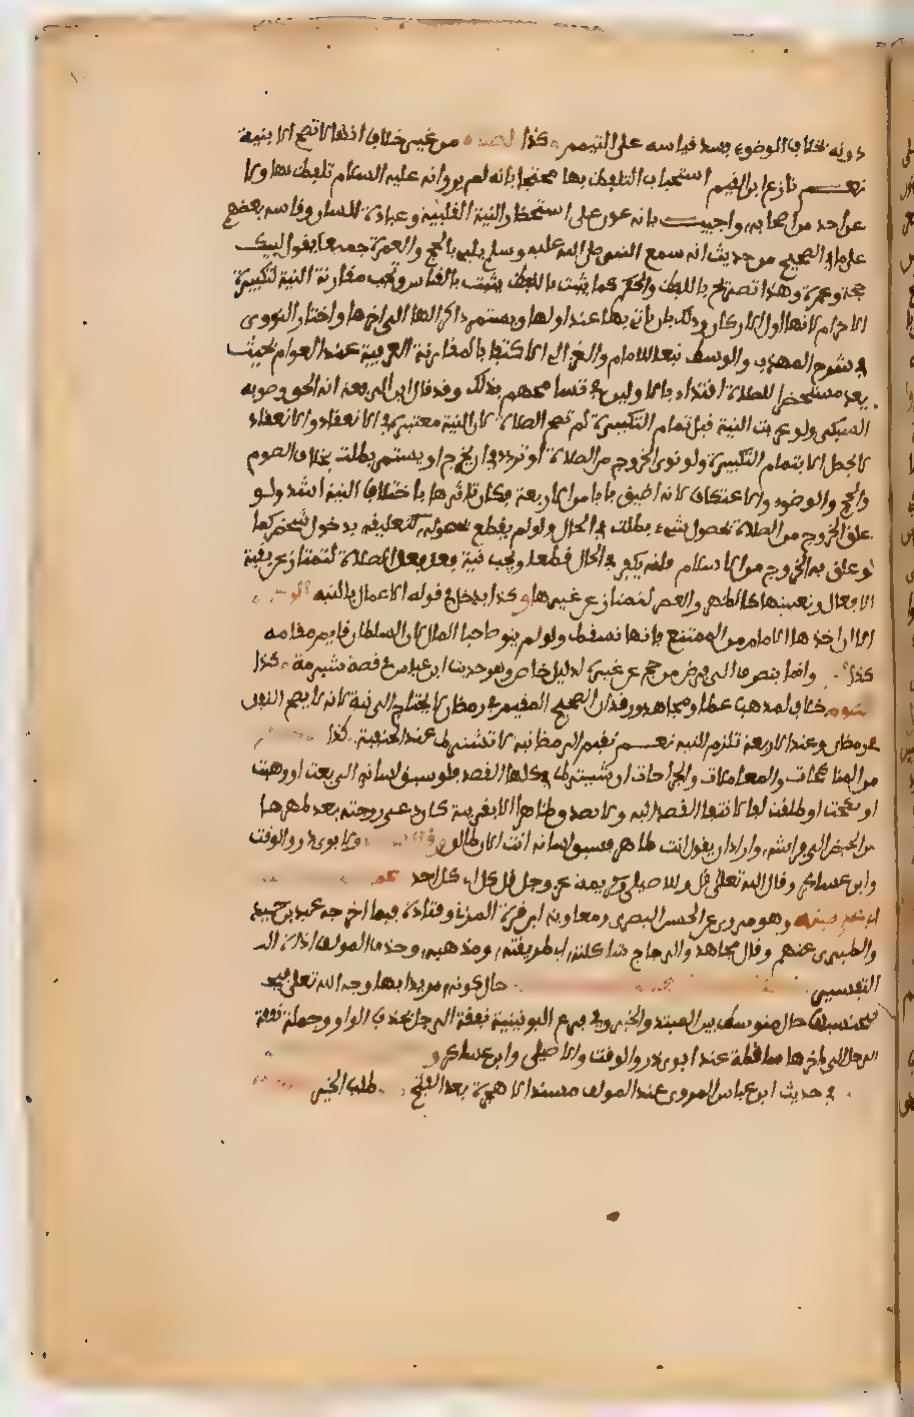 دونه بخلاف الوضوء يفسد قياسه على التيمم كذا من غير خلاف انها لا تصح الا بنية
نعم نازع ابن القيم استحباب التلفظ بها محتجا بانه لم يرو انه عليه السلام تلفظ بها ولا
عن احد من اصحابه واجيب بانه عون على استحضار النية القلبية وعبادة للسان وقاسه بعضهم
على ما في الصحيح من حديث انه سمع النبي صلى الله عليه وسلم يلبي بالحج والعمرة جميعا يقول لبيك
حجة وعمرة وهذا تصريح باللفظ والحكم كما يثبت باللفظ يثبت بالقياس وتجب مقارنة النية لتكبيرة
الاحرام لانها اول الاركان وذلك بان ياتي بها عند اولها ويستمر ذاكرا لها الى اخرها واختار النووي
في شرح المهذب والوسيط تبعا للامام والغزالي الاكتفاء بالمقارنة العرفية عند العوام بحيث
يعد مستحضرا للصلاة اقتداء بالاولين في تسامحهم بذلك وقد قال ابن الرفعة انه الحق وصوبه
السبكي ولو عزبت النية قبل تمام التكبيرة لم تصح الصلاة لان النية معتبرة في الانعقاد والانعقاد
لا يحصل الا بتمام التكبيرة ولو نوى الخروج من الصلاة او تردد في ان يخرج او يستمر بطلت بخلاف الصوم
والحج والوضوء والاعتكاف لانه اضيق بابا من الاربعة فكان تاثرها باختلاف النية اشد ولو
علق الخروج من الصلاة بحصول شيء بطلت في الحال ولو لم يقطع بحصوله كتعليقه بدخول شخص كما
لو علق به الخروج من الاسلام فانه يكفر في الحال قطعا وتجب نية فعل الصلاة لتمتاز عن بقية
الافعال وتعيينها كالظهر والعصر لتمتاز عن غيرها وكذا يدخل في قوله الاعمال بالنية
الا ان اخذها الامام من الممتنع فانها تسقط ولو لم ينو صاحب المال لان السلطان قايم مقامه
كذا وانما ينصرف الى فرض من حج عن غيره لدليل خاص وهو حديث ابن عباس في قصة شبرمة كذا
خلاف لمذهب عطاء ومجاهد وزفر ان الصحيح المقيم في رمضان لا يحتاج الى نية لانه لا يصح النفل
في رمضان وعند الاربعة تلزم النية نعم تعيين الرمضانية لا تشترط عند الحنفية كذا
من المناكحات والمعاملات والجراحات اذ يشترط في كلها القصد فلو سبق لسانه الى بعت او وهبت
او نكحت او طلقت لغا لانتفاء القصد اليه ولا يصدق ظاهرا الا بقرينة كان دعى زوجته بعد طهرها
من الحيض الى فراشه واراد ان يقول انت طاهر فسبق لسانه انت الان طالق ولابوي ذر والوقت
وابن عساكر وقال الله تعالى قل وللاصيلي وكريمة عز وجل قل كل اي كل احد
وهو مروي عن الحسن البصري ومعاوية ابن قرة المزني وقتادة فيما اخرجه عبد بن حميد
والطبري عنهم وقال مجاهد والزجاج شاكلته اي طريقته ومذهبه وحذف المولف اداة
التفسير حال كونه مريدا بها وجه الله تعالى
يحتسبها حال متوسط بين المبتدا والخبر وفي فرع اليونينية نفقة الرجل بحذف الواو وجملة نفقة
الرجل الى اخرها ساقطة عند ابوي ذر والوقت والاصيلي وابن عساكر و
في حديث ابن عباس المروي عند المولف مسندا لا هجرة بعد الفتح طلب الخير